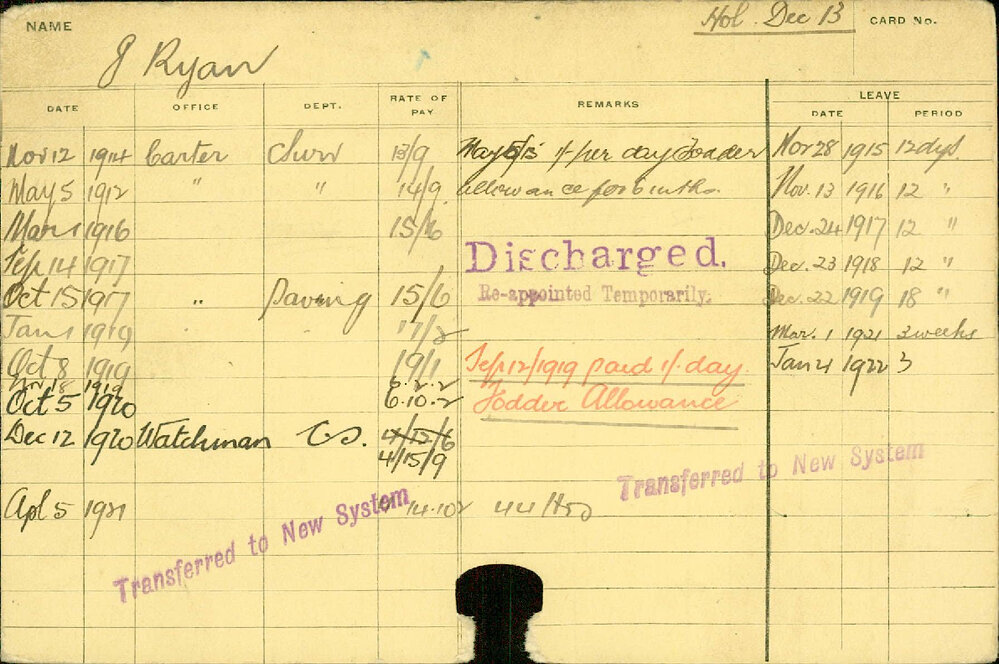 NAME
Hol. Dec 13
CARD No.
J Ryan
DATE OFFICE DEPT. RATE OF PAY REMARKS LEAVE
DATE PERIOD
Nov 12 1914 Carter 13/9 May 5/15 1/- per day Fodder Nov 28 1915 12 dys.
May 5 1912 " " 14/9 allowance for 6 mths. Nov. 13 1916 12 "
Mar 1 1916 15/6 Dec. 24 1917 12 "
Discharged.
Sep 14 1917 Dec. 23 1918 12 "
Oct 15 1917 " Paving 15/6 Re-appointed Temporarily. Dec. 22 1919 18 "
Jan 1 1919 17/2 Mar. 1 1921 3 weeks
Oct 8 1919 19/1 Sep 12/1919 paid 1/- day Jan 4 1922 3
18 1919 6.2.2
Oct 5 1920 6.10.2 Fodder Allowance
Dec 12 1920 Watchman C.S. 4/12/6
4/15/9
Transferred to New System
Apl 5 1921 14.10 44 Hrs
Transferred to New System